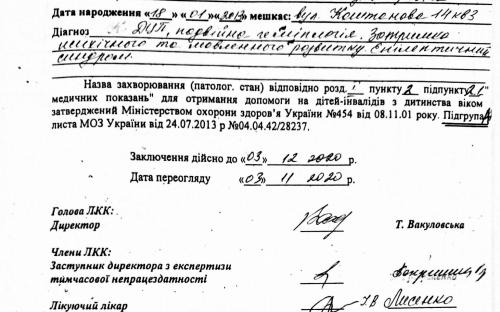 Дата народження «18» «01» «2013» мешкає: вул. Каштанова 14 кв3
Діагноз К: ДЦП, подвійна геміплегія. Затримка
психічного та мовленного розвитку. Епілептичний
синдром.
Назва захворювання (патолог. стан) відповідно розд. I пункту 2 підпункту 2.1"
медичних показань" для отримання допомоги на дітей-інвалідів з дитинства віком
затверджений Міністерством охорони здоров'я України №454 від 08.11.01 року. Підгрупа А
листа МОЗ України від 24.07.2013 р №04.04.42/28237.
Заключення дійсно до «03» 12 2020 р.
Дата переогляду «03» 11 2020 р.
Голова ЛКК:
Директор Т. Вакуловська
Члени ЛКК:
Заступник директора з експертизи
тимчасового непрацездатності
Лікуючий лікар І В Лисенко